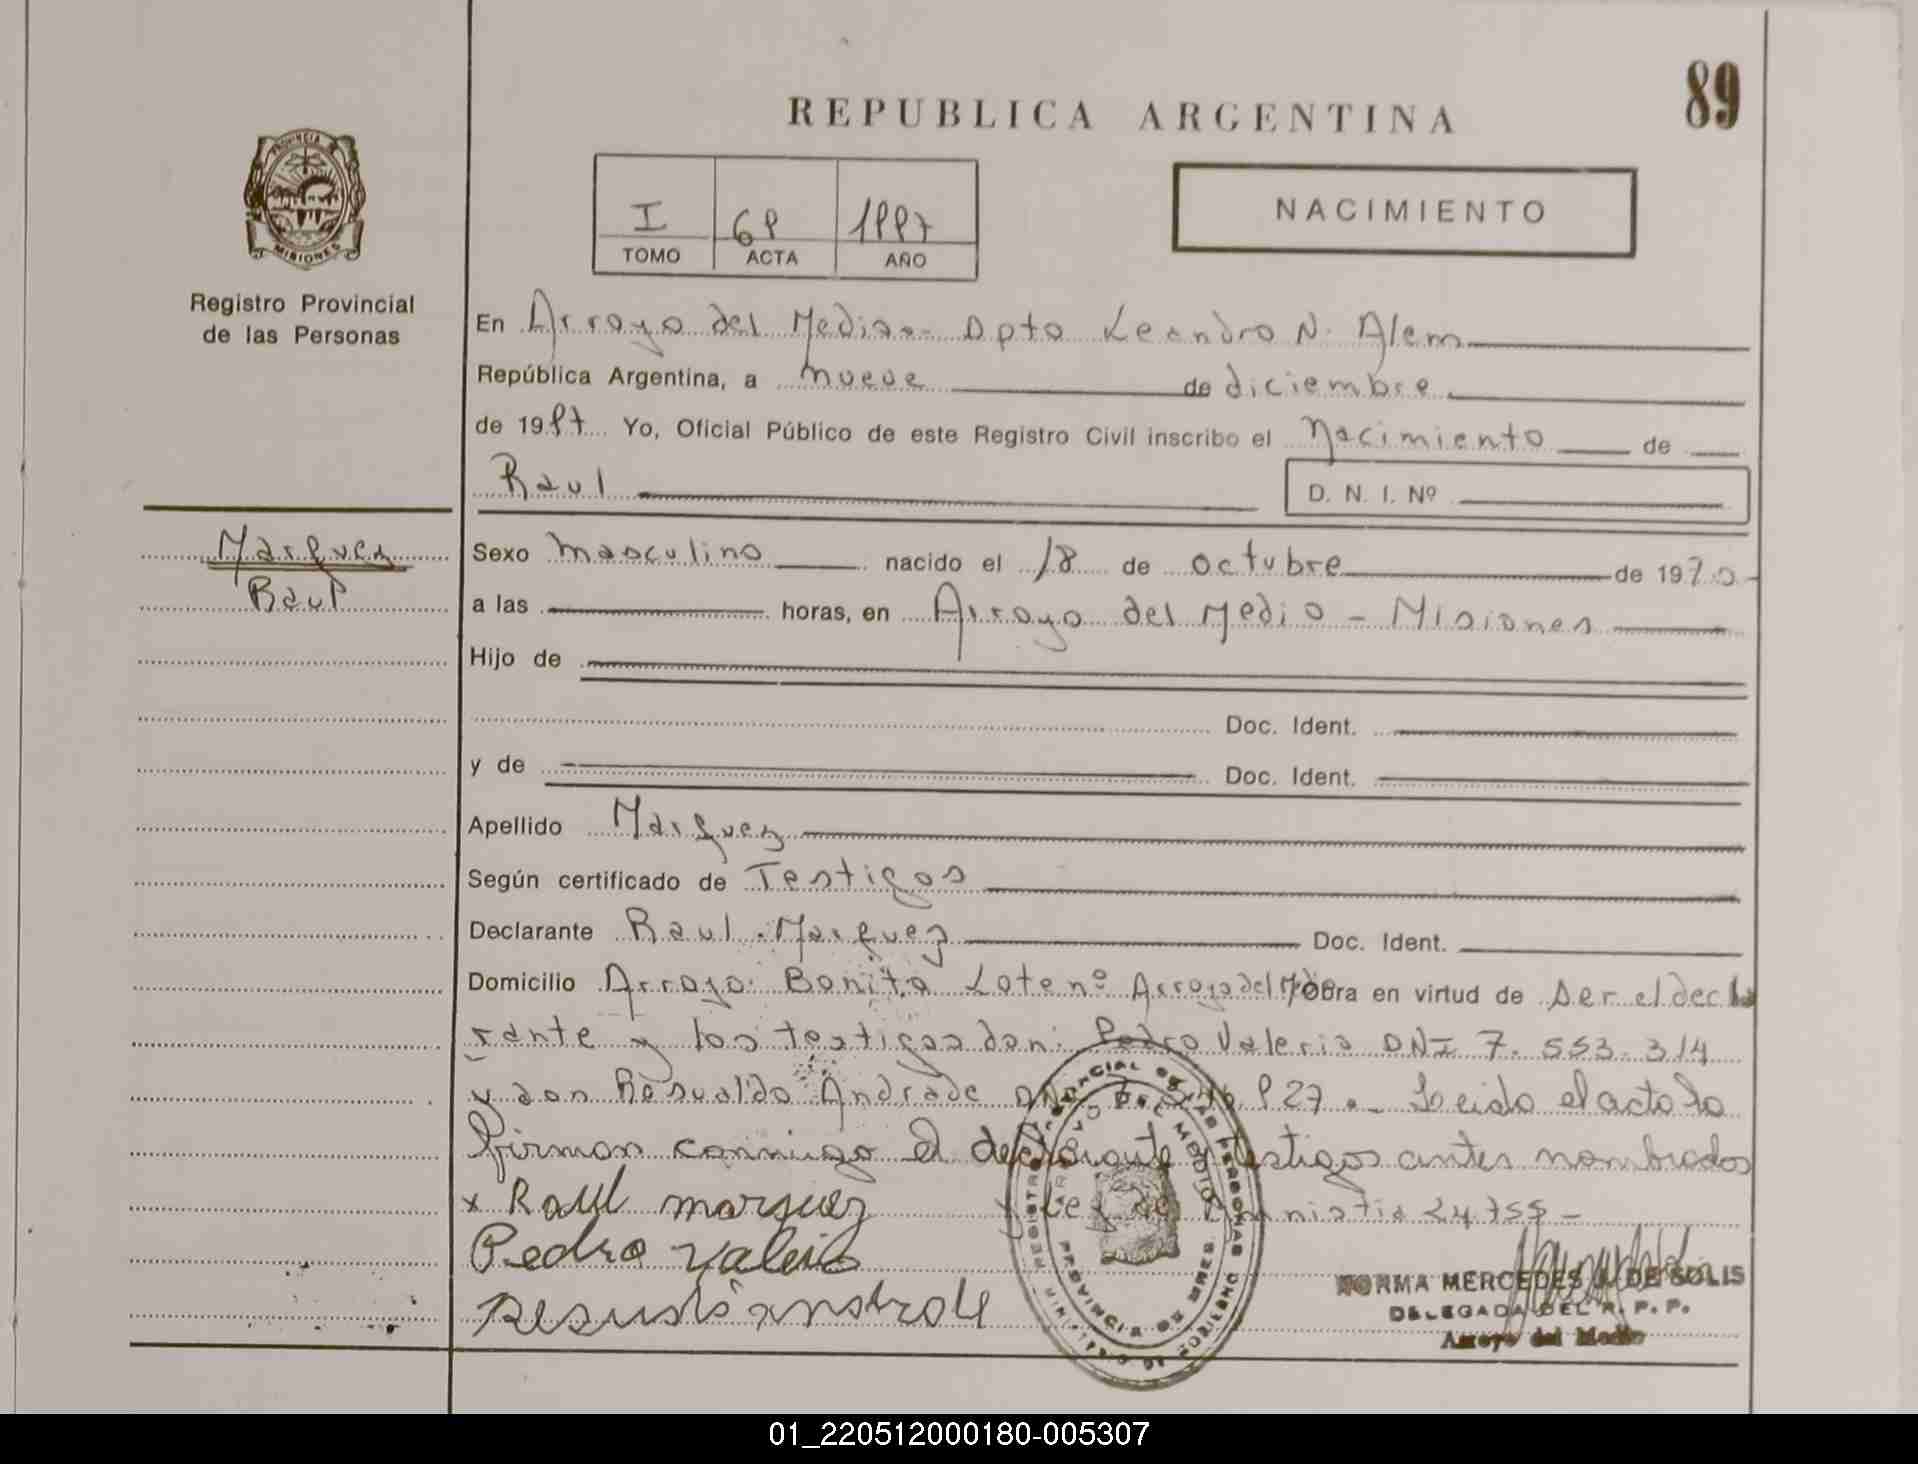 89
REPUBLICA ARGENTINA
PROVINCIA
MISIONES
Registro Provincial
de las Personas
I 68 1987
TOMO ACTA AÑO
NACIMIENTO
En Arroyo del Medio.- Dpto Leandro N. Alem
República Argentina, a nueve de diciembre
de 1987 Yo, Oficial Público de este Registro Civil inscribo el Nacimiento de
Raul D. N. I. Nº
Marquez
Raul
Sexo masculino nacido el 18 de octubre de 1970-
a las horas, en Arroyo del Medio - Misiones
Hijo de
Doc. Ident.
y de Doc. Ident.
Apellido Marquez
Según certificado de Testigos
Declarante Raul Marquez Doc. Ident.
Domicilio Arroyo Bonito Lote nº Arroyo del Obra en virtud de ser el decla
rante y los testigos don: Pedro Valerio DNI 7.553.314
y don Andrade 827.- Leido el acta la
firman conmigo el declarante y testigos antes nombrados
x Raul marquez y Ley de 24755-
Pedro Valerio
NORMA MERCEDES J. DE SOLIS
DELEGADA DEL R. P. P.
Arroyo del Medio
01_220512000180-005307